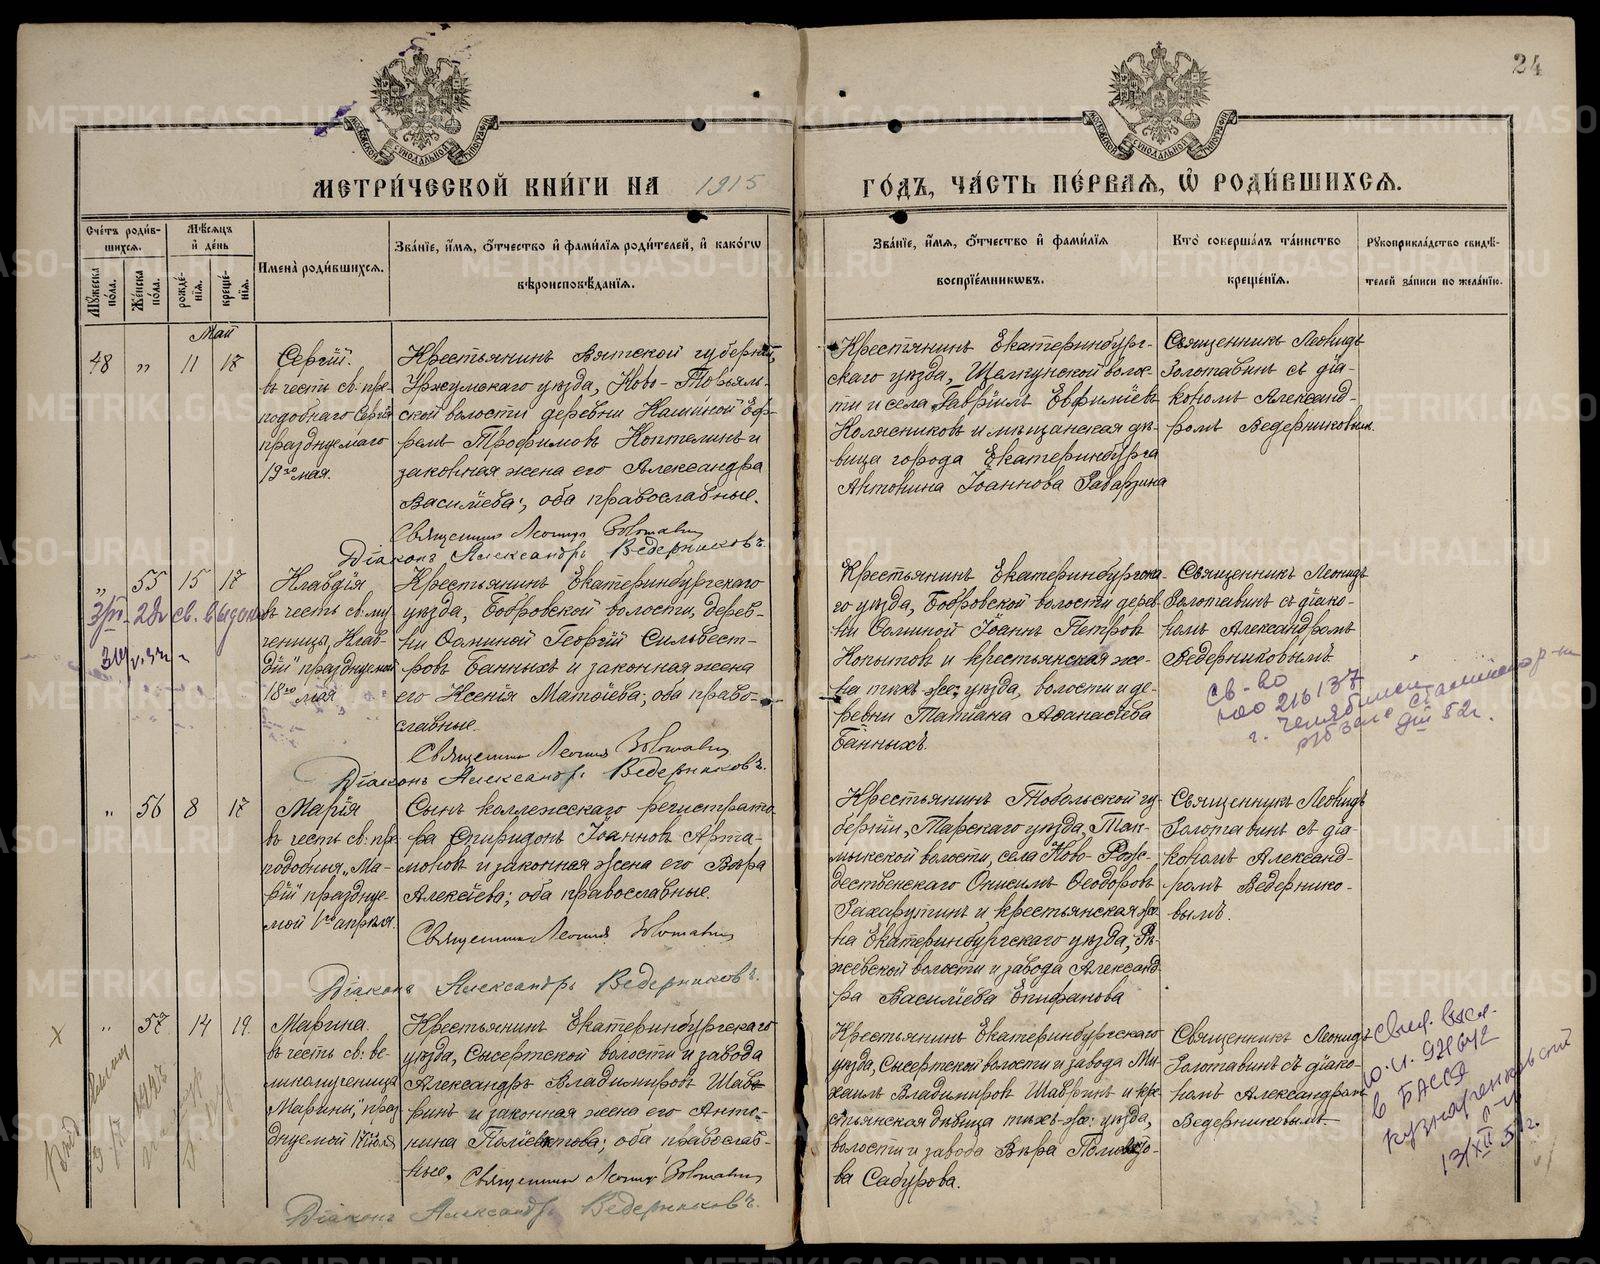 24
МОСКОВСКОЙ СѴНОДАЛЬНОЙ ТИПОГРАФІИ
МОСКОВСКОЙ СѴНОДАЛЬНОЙ ТИПОГРАФІИ
МЕТРИ́ЧЕСКОЙ КНИ́ГИ НА 1915
ГО́ДЪ, ЧА́СТЬ ПЕ́РВАѦ, Ѡ҆ РОДИ́ВШИХСѦ.
Сче́тъ роди́в-
шихсѧ.
Мꙋ́жеска по́ла.
Же́нска по́ла.
Мѣ́сѧцъ и҆ де́нь
рожде́-
нїѧ.
креще́-
нїѧ.
Имена̀ роди́вшихсѧ.
Зва́нїе, и҆́мѧ, ѻ҆́тчество и҆ фами́лїѧ роди́телей, и҆ како́гѡ
вѣроисповѣ́данїѧ.
Зва́нїе, и҆́мѧ, ѻ҆́тчество и҆ фами́лїѧ
воспрїе́мникѡвъ.
Кто̀ соверша́лъ та́инство
креще́нїѧ.
Рꙋкоприкла́дство свидѣ́-
телей за́писи по жела́нїю.
Май
48 " 11 18
Сергій
въ честь св. пре-
подобнаго Сергія
празднуемаго
19го мая.
Крестьянинъ Вятской губерніи,
Уржумскаго уѣзда, Ново-Торъяль-
ской волости деревни Кашиной Еф-
ремъ Трофимовъ Коптелинъ и
законная жена его Александра
Васильева; оба православные.
Священникъ Леонидъ Золотавинъ
Діаконъ Александръ Ведерниковъ.
Крестьянинъ Екатеринбург-
скаго уѣзда, Щелкунской волос-
ти и села Гавріилъ Евфиміевъ
Колясниковъ и мѣщанская дѣ-
вица города Екатеринбурга
Антонина Іоаннова
Священникъ Леонидъ
Золотавинъ съ діа-
кономъ Александ-
ромъ Ведерниковымъ.
" 55 15 17
Клавдія
въ честь св. му-
ченицы „Клав-
діи" празднуемой
18го мая
Крестьянинъ Екатеринбургскаго
уѣзда, Бобровской волости, дерев-
ни Ѳоминой Георгій Сильвест-
ровъ Банныхъ и законная жена
его Ксенія Матѳіева; оба право-
славные.
Священникъ Леонидъ Золотавинъ
Діаконъ Александръ Ведерниковъ.
Крестьянинъ Екатеринбургска-
го уѣзда, Бобровской волости дерев-
ни Ѳоминой Іоаннъ Петровъ
Копытовъ и крестьянская же-
на тѣхъ-же: уѣзда, волости и де-
ревни Татіана Аѳанасіева
Банныхъ.
Священникъ Леонидъ
Золотавинъ съ діако-
номъ Александромъ
Ведерниковымъ
св-во
216137
г. Челябинск
52г.
" 56 8 17
Марія
въ честь св. пре-
подобныя „Ма-
ріи" праздну-
мой 1го апрѣля.
Сынъ коллежскаго регистрато-
ра Спиридонъ Іоанновъ Арта-
моновъ и законная жена его Вѣра
Алексіева; оба православные.
Священникъ Леонидъ Золотавинъ
Діаконъ Александръ Ведерниковъ.
Крестьянинъ Тобольской гу-
берніи, Тарскаго уѣзда,
волости, села Ново-Рож-
дественскаго Онисимъ Ѳеодоровъ
и крестьянская же-
на Екатеринбургскаго уѣзда, Рѣ-
жевской волости и завода Александ-
ра Васильева Епифанова
Священникъ Леонидъ
Золотавинъ съ діа-
кономъ Александ-
ромъ Ведернико-
вымъ.
" 57 14 19.
Марина
въ честь св. ве-
ликомученицы
„Марины," праз-
днуемой 17 іюля
Крестьянинъ Екатеринбургскаго
уѣзда, Сысертской волости и завода
Александръ Владиміровъ Шав-
ринъ и законная жена его Анто-
нина; оба православ-
ные. Священникъ Леонидъ Золотавинъ
Діаконъ Александръ Ведерниковъ.
Крестьянинъ Екатеринбургскаго
уѣзда, Сысертской волости и завода Ми-
хаилъ Владиміровъ Шавринъ и кре-
стьянская дѣвица тѣхъ-же: уѣзда,
волости и завода Вѣра
ва Сабурова.
Священникъ Леонидъ
Золотавинъ съ діако-
номъ Александромъ
Ведерниковымъ.